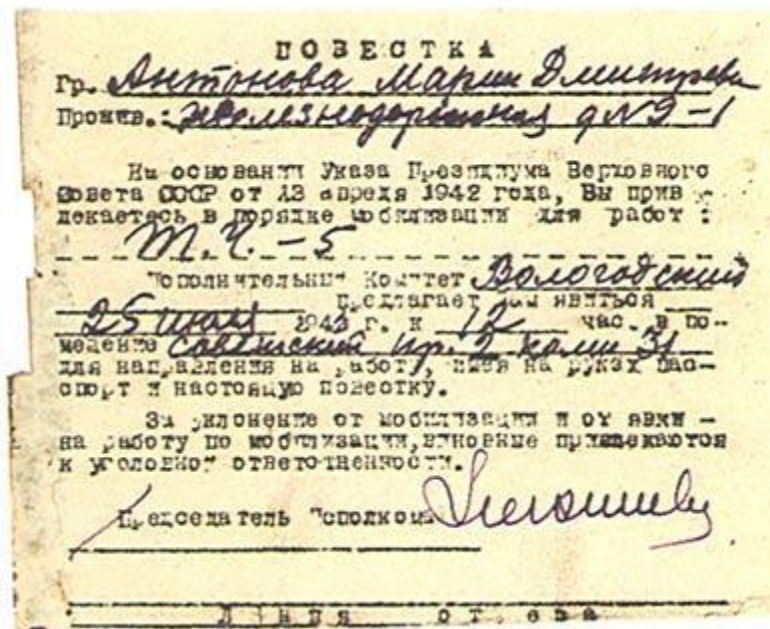 ПОВЕСТКА
Гр. Антонова Мария Дмитриев
Прожив.: Железнодорожная д №9-1
На основании Указа Президиума Верховного
Совета СССР от 13 апреля 1942 года, Вы прив -
лекаетесь в порядке мобилизации для работ :
Т.Ч.-5
Исполнительный Комитет Вологодский
предлагает Вам явиться
25 1942 г. к 12 час. в по-
мещение Советский пр. 2 комн 31
для направления на работу, имея на руках пас-
спорт и настоящую повестку.
За уклонение от мобилизации и от явки -
на работу по мобилизации, виновные привлекаются
к уголовной ответственности.
Председатель Исполкома
Линия отреза